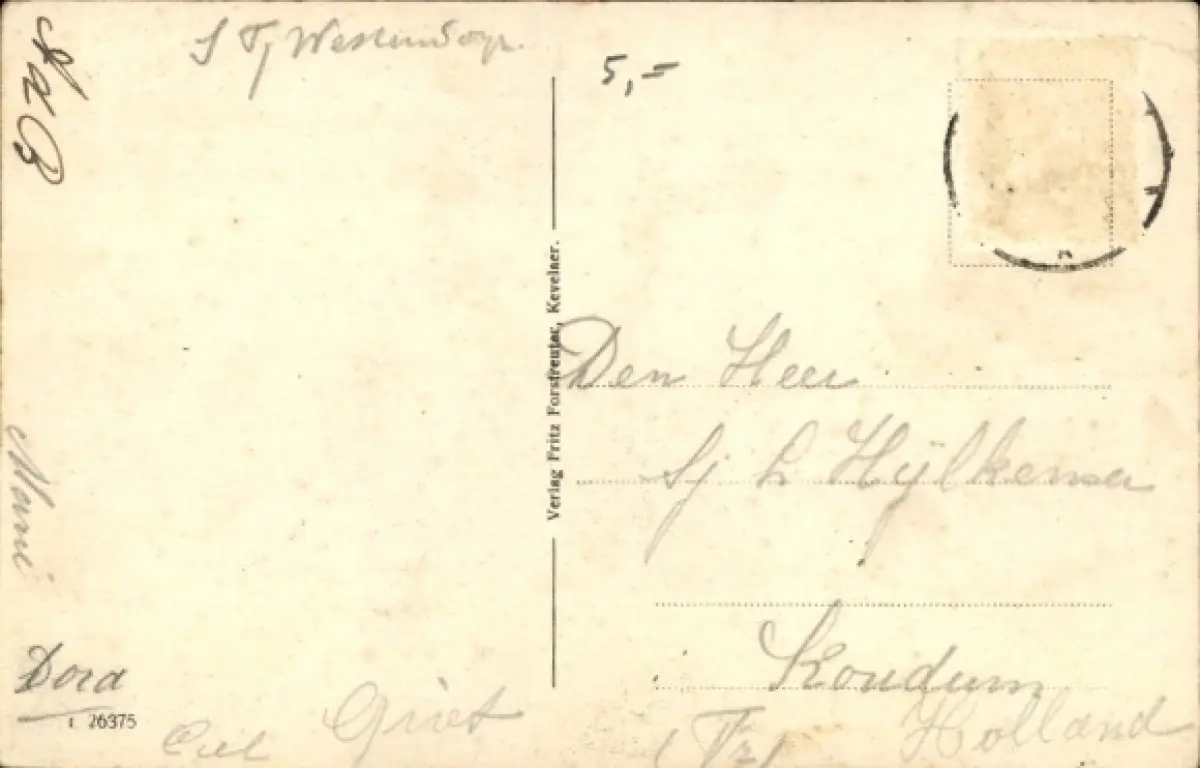 S Tj Westendorp.
5,=
Verlag Fritz Forstreuter, Kevelaer.
Den Heer
Sj h Hÿlkema
Koudum
(Fr) Holland
Dora
1 26375
Griet